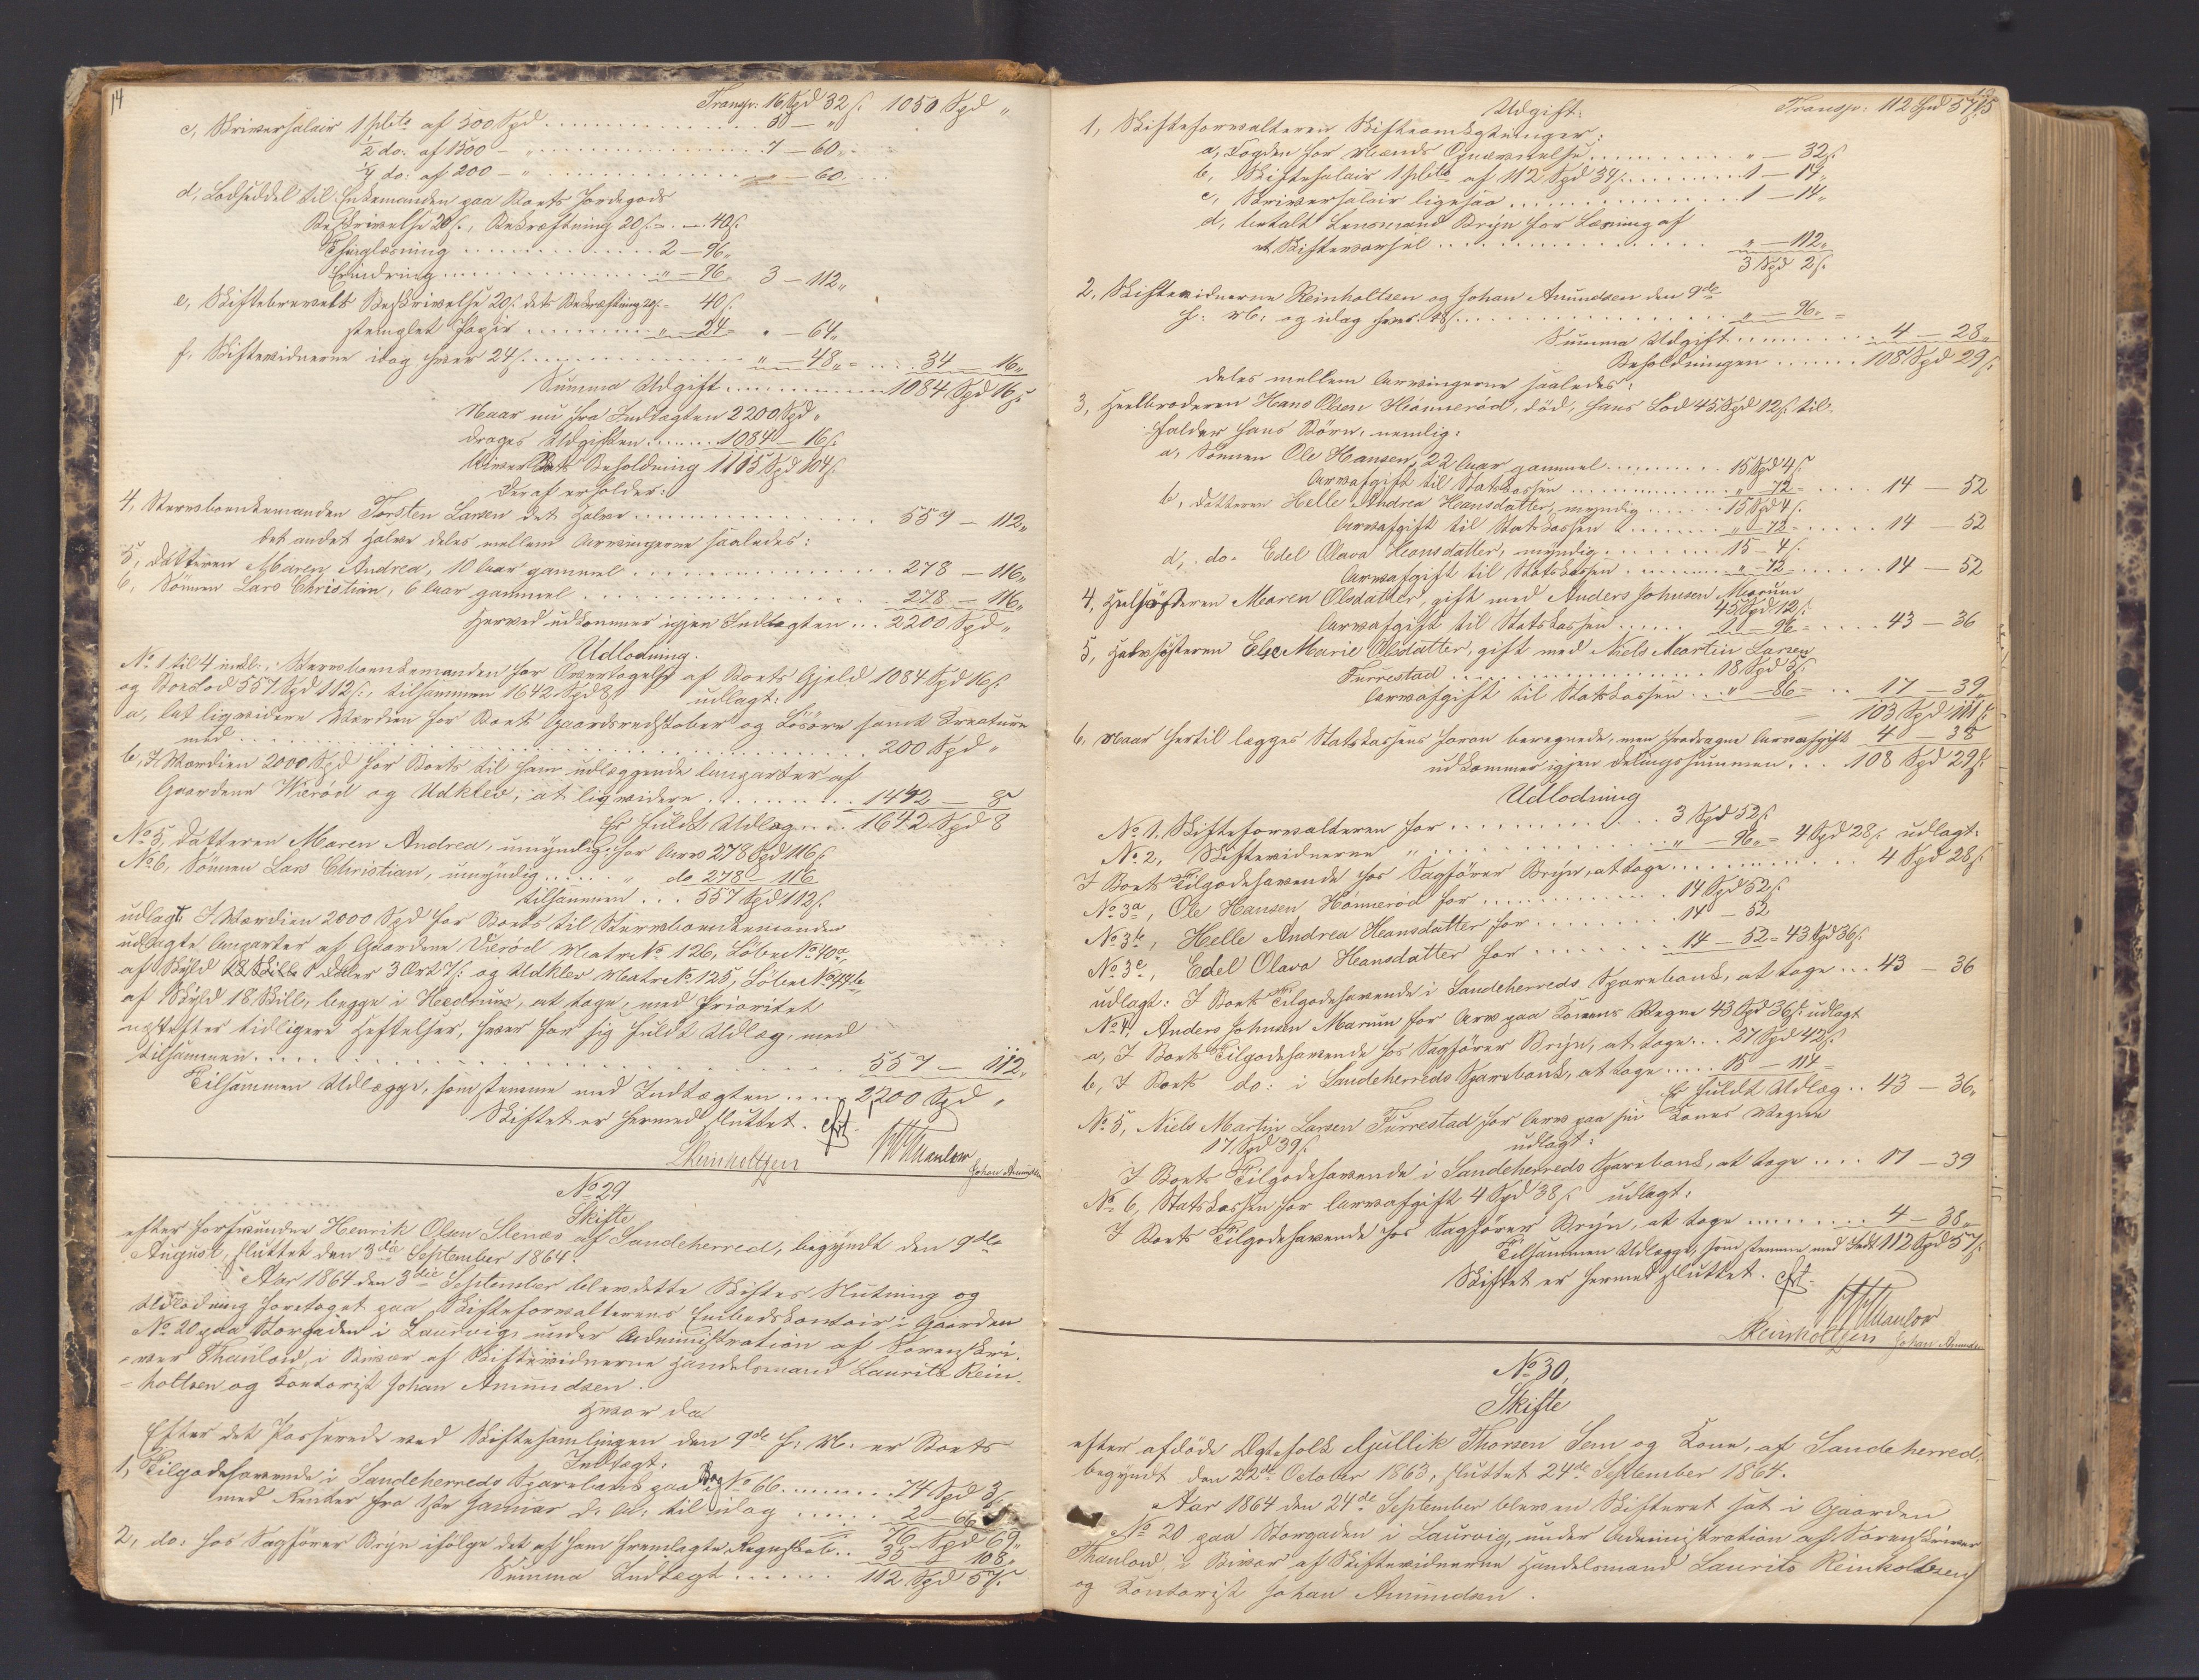 14
Transp: 16 Spd 32 s. 1050 Spd "
c, Skriversalair 1 plite af 500 Spd ........ 5 — "
1/2 do: af 1500 — " ........ 7 — 60 "
1/4 do: af 200 — " ........ " — 60 "
d, Lodseddel til Enkemanden paa Boets Jordegods
Beskrivelse 20 s., Bekræftning 20 s. = " — 40 s.
Thinglæsning ........ 2 — 96 "
Erindring ........ " — 96 " 3 — 112 "
e, Skiftebrevets Beskrivelse 20 s. dets Bekræftning 20 s. = 40 s.
stemplet Papir ........ " — 24 = " — 64 "
f, Skiftevidnerne idag hver 24 s. ........ " — 48 " = .. 34 — 16 "
Summa Udgift ........ 1084 Spd 16 s.
Naar nu fra Indtægten 2200 Spd "
drages Udgiften ...... 1084 — 16 s.
bliver Boets Beholdning 1115 Spd 104 s.
Deraf erholder:
4, Stervboenkemanden Torsten Larsen det halve ........ 557 — 112 "
det andet halve deles mellem Arvingerne saaledes:
5, Datteren Maren Andrea, 10 Aar gammel ........ 278 — 116 "
6, Sønnen Lars Christian, 6 Aar gammel ........ 278 — 116 "
Herved udkommer igjen Indtægten ... 2200 Spd "
Udlodning.
No 1 til 4 inkl:, Stervboenkemanden for Overtagelse af Boets Gjeld 1084 Spd 16 s.
og Boeslod 557 Spd 112 s., tilsammen 1642 Spd 8 s. udlagt:
a, lat liqvidere Værdien for Boets Gaardsredskaber og Løsøre samt Creature
med ........ 200 Spd "
b, I Værdien 2000 Spd for Boets til ham udlæggende Anparter af
Gaardene Vierød og Udklev, at liqvidere ........ 1442 — 8
Er fuldt Udlæg .... 1642 Spd 8
No 5, Datteren Maren Andrea, umyndig, for Arv 278 Spd 116 s.
No 6, Sønnen Lars Christian, umyndig ..... " do 278 — 116
tilsammen ... 557 Spd 112 s.
udlagt I Værdien 2000 Spd for Boets til Stervboenkemanden
udlagte Anparter af Gaardene Vierød Matr No 126, Løbe No 40a,
af Skyld Daler 3 Ort 7 s. og Udklev Matr No 125, Løbe No
af Skyld 18 Skill, begge i Hedrum, at tage, med Prioritet
næstefter tidligere Heftelser, hver for sig fuldt Udlæg, med
tilsammen ........ 557 — 112 "
Tilsammen Udlægge, som stemme med Indtægten ..... 2,200 Spd "
Skiftet er hermed sluttet.
Thaulow
LReinholtzen Johan Amundsen
No 29
Skifte
efter forsvundne Henrik Olsen Stenæs af Sandeherred, begyndt den 9de
August, sluttet den 3die September 1864.
Aar 1864 den 3die September blev dette Skiftes Slutning og
Udlodning foretaget paa Skifteforvalterens Embedskontoir i Gaarden
No 20 paa Storgaden i Laurvig, under Administration af Sorenskri-
-ver Thaulow, i Biværelse af Skiftevidnerne Handelsmand Laurits Rein-
-holtsen og Kontorist Johan Amundsen.
Hvor da
Efter det Passerede ved Skiftesamlingen den 9de f: M: er Boets
Indtægt:
1, Tilgodehavende i Sandeherreds Sparebank paa Bog No 66 ........ 74 Spd 3 s.
med Renter fra 1ste Januar d: A: til idag ...... 2 — 66
76 Spd 69 "
2, do: hos Sagfører Bryn ifølge det af ham fremlagte Regnskab ... 35 — 108 "
Summa Indtægt ...... 112 Spd 57 s.
15
Transp: 112 Spd 57 s.
Udgift:
1, Skifteforvalteren Skifteomkostninger:
a, Fogden for Mænds Opnævnelse ........ " — 32 s.
b, Skiftesalair 1 plite af 112 Spd 34 s. ........ 1 — 14 "
c, Skriversalair ligesaa ........ 1 — 14 "
d, betalt Lensmand Bryn for Læsning af
et Skiftevarsel ........ " — 112 "
3 Spd 2 s.
2, Skiftevidnerne Reinholtsen og Johan Amundsen den 9de
f: M: og idag hver 48 s. ........ " — 96 " =
Summa Udgift ........ 4 — 28 "
Beholdningen ...... 108 Spd 29 s.
deles mellem Arvingerne saaledes:
3, Heelbroderen Hans Olsen Hønnerød, død, hans Lod 45 Spd 12 s. til-
falder hans Børn, nemlig:
a, Sønnen Ole Hansen, 22 Aar gammel ........ 15 Spd 4 s.
Arveafgift til Statskassen ........ " 72 = ..... 14 — 52
b, Datteren Helle Andrea Hansdatter, myndig ...... 15 Spd 4 s.
Arveafgift til Statskassen ........ " — 72 = ..... 14 — 52
d, do. Edel Olava Hansdatter, myndig ........ 15 — 4 s.
Arveafgift til Statskassen ........ " — 72 = ..... 14 — 52
4, Helsøsteren Maren Olsdatter, gift med Anders Johnsen Marum
45 Spd 12 s.
Arveafgift til Statskassen ...... 1 — 96 = ..... 43 — 36
5, Halvsøsteren Else Marie Olsdatter, gift med Niels Martin Larsen
Furrestad ........ 18 Spd 5 s.
Arveafgift til Statskassen ... " — 86 = ... 17 — 39 "
103 Spd 111 s.
6, Naar hertil lægges Statskassens foran beregnede, men fradragne Arveafgift 4 — 38
udkommer igjen Delingssummen ... 108 Spd 29 s.
Udlodning
No 1, Skifteforvalteren for ........ 3 Spd 52 s.
No 2, Skiftevidnerne " ........ " — 96 " = 4 Spd 28 s. udlagt:
I Boets Tilgodehavende hos Sagfører Bryn, at tage ........ 4 Spd 28 s.
No 3a, Ole Hansen Hønnerød for ........ 14 Spd 52 s.
No 3b, Helle Andrea Hansdatter for ........ 14 — 52
No 3c, Edel Olava Hansdatter for ........ 14 — 52 = 43 Spd 36 s.
udlagt: I Boets Tilgodehavende i Sandeherreds Sparebank, at tage ... 43 — 36
No 4, Anders Johnsen Marum for Arv paa Konens Vegne 43 Spd 36 s. udlagt
a, I Boets Tilgodehavende hos Sagfører Bryn, at tage ... 27 Spd 42 s.
b, I Boets do: i Sandeherreds Sparebank, at tage ..... 15 — 114 =
Er fuldt Udlæg .. 43 — 36 "
No 5, Niels Martin Larsen Furrestad for Arv paa sin Kones Vegne
17 Spd 39 s. udlagt:
I Boets Tilgodehavende i Sandeherreds Sparebank, at tage .... 17 — 39
No 6, Statskassen for Arveafgift 4 Spd 38 s. udlagt:
I Boets Tilgodehavende hos Sagfører Bryn, at tage ........ 4 — 38 "
Tilsammen Udlægge, som stemme med Indt 112 Spd 57 s.
Skiftet er hermed sluttet.
Thaulow
LReinholtzen Johan Amundsen
No 30,
Skifte
efter afdøde Ægtefolk Gullik Thorsen Sem og Kone, af Sandeherred,
begyndt den 22de October 1863, sluttet 24de September 1864.
Aar 1864 den 24de September blev en Skifteret sat i Gaarden
No 20 paa Storgaden i Laurvig, under Administration af Sorenskriver
Thaulow, i Bivær af Skiftevidnerne Handelsmand Laurits Reinholtsen
og Kontorist Johan Amundsen.